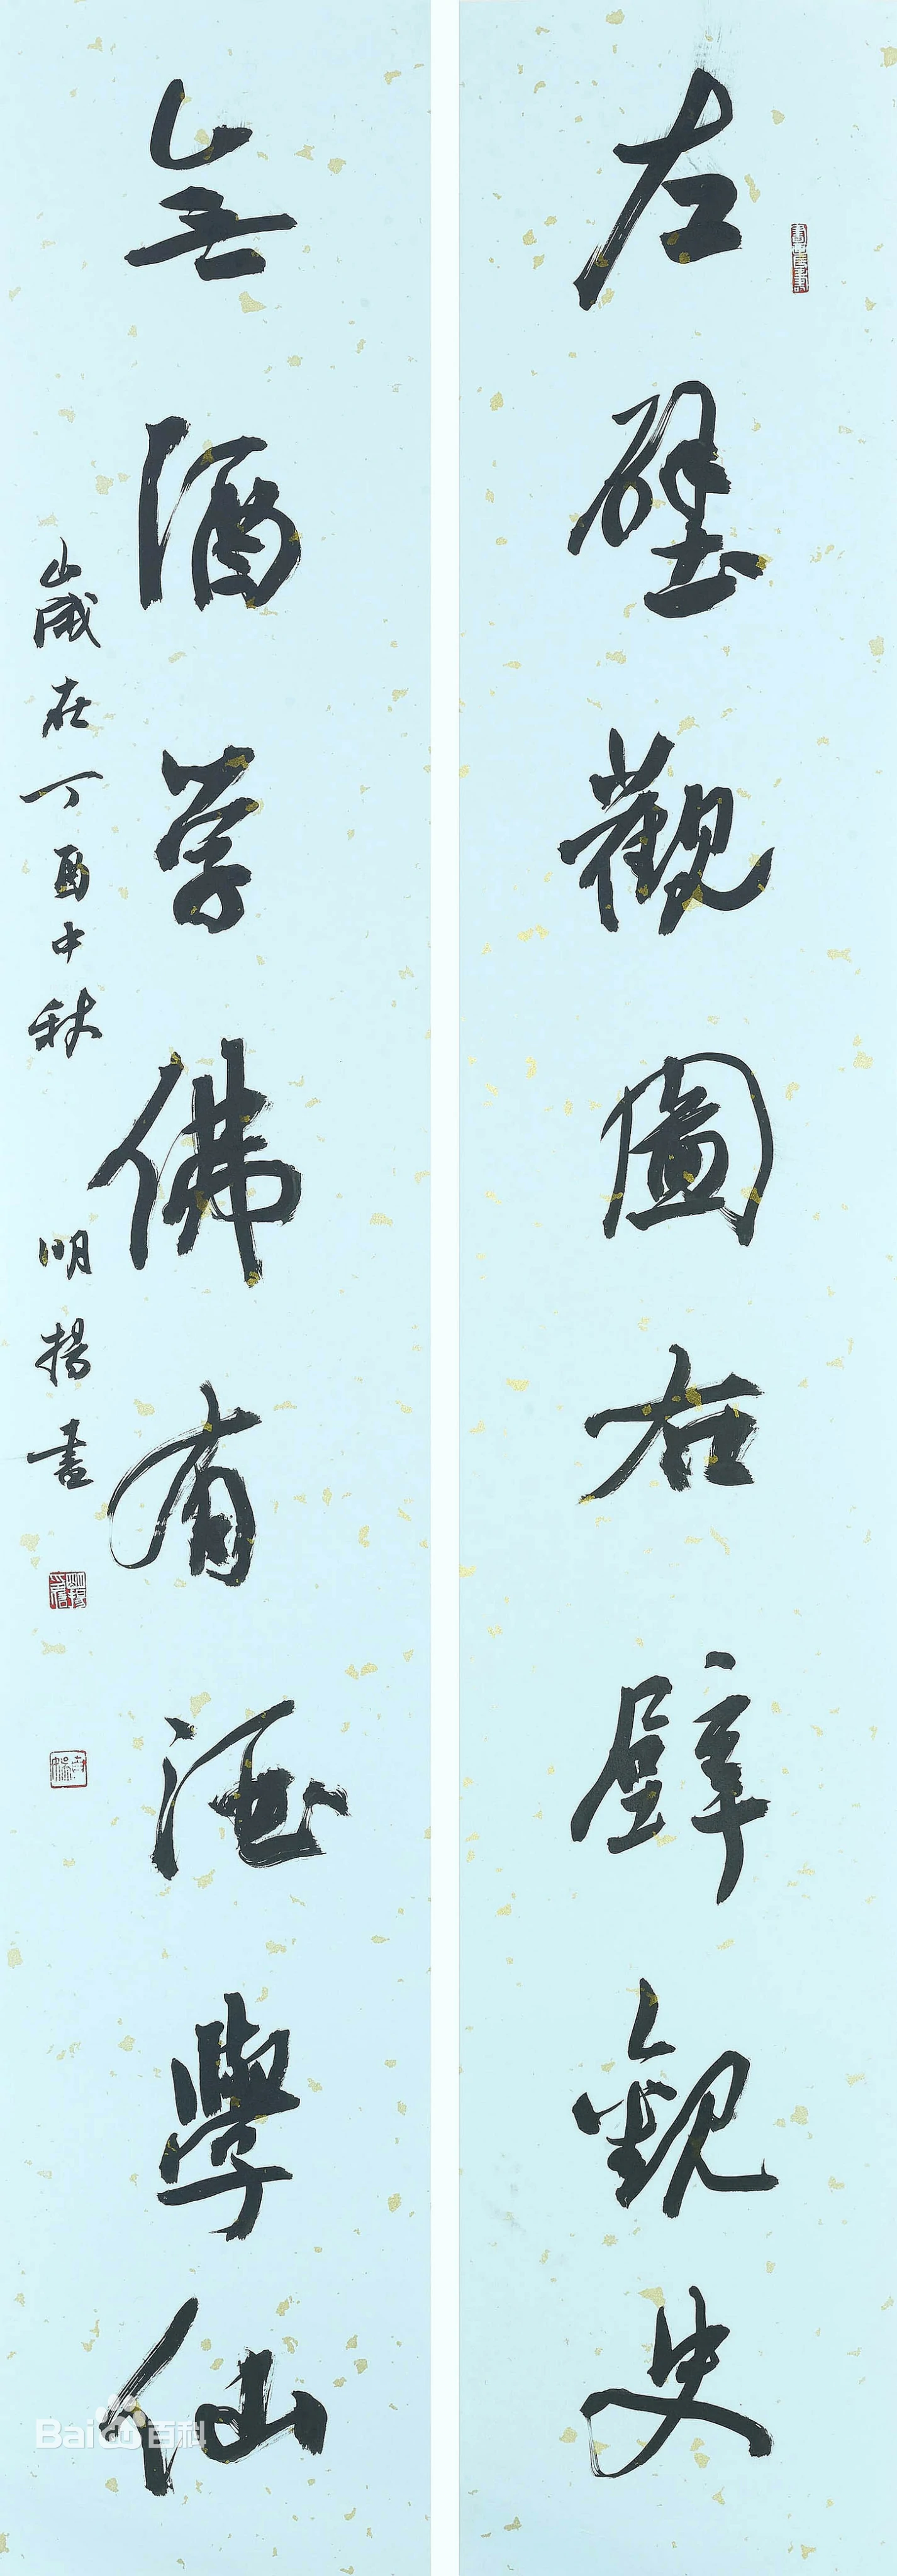 左壁觀圖右壁觀史
無酒学佛有酒學仙
歲在丁酉中秋
明揚書
Baidu百科